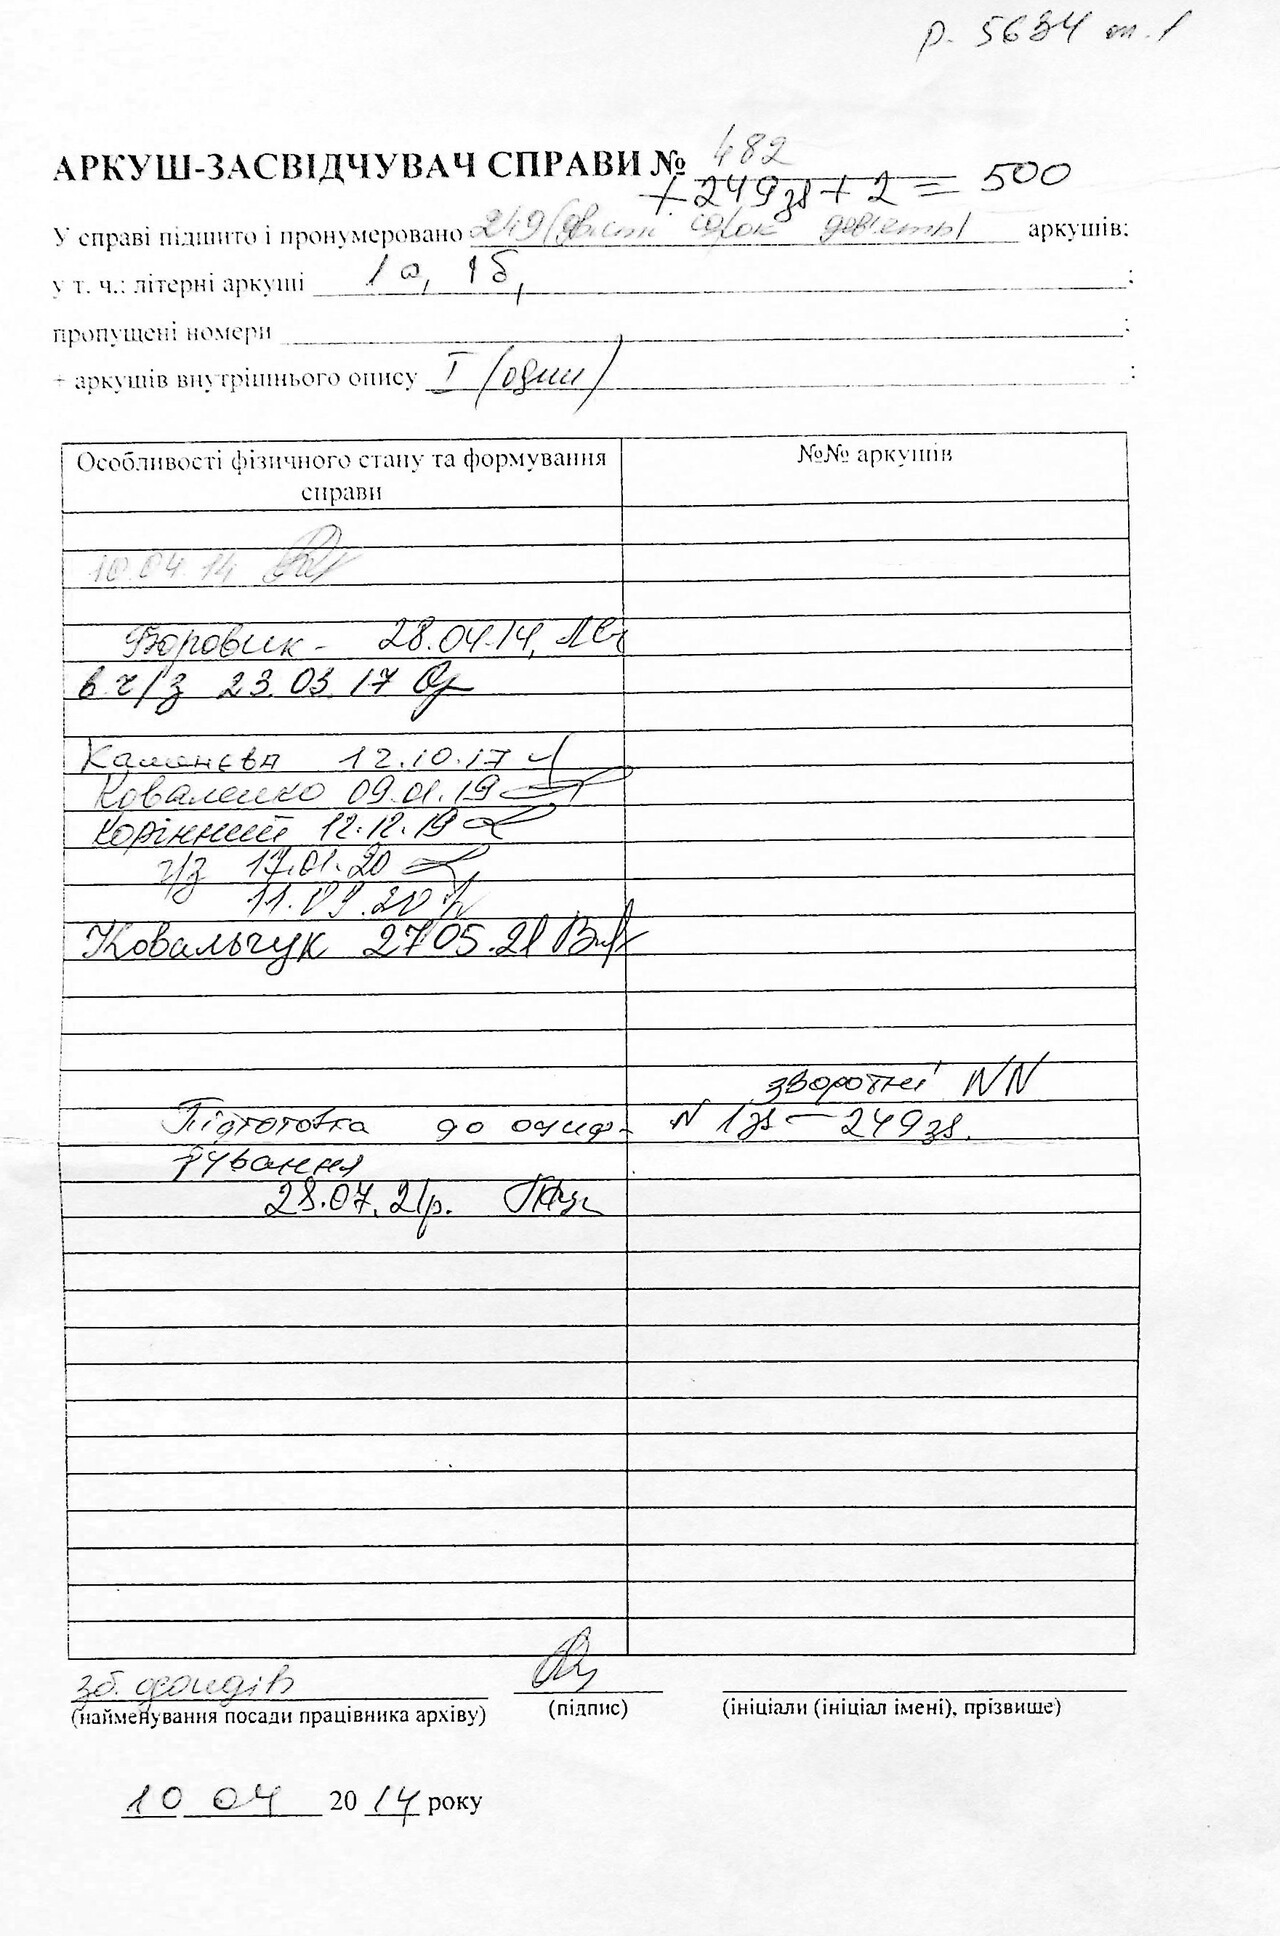 р. 5634 т. 1
АРКУШ-ЗАСВІДЧУВАЧ СПРАВИ № 482
+ 249зв + 2 = 500
У справі підшито і пронумеровано 249 (двісті сорок дев'ять) аркушів;
у т. ч.: літерні аркуші 1а, 1б, ;
пропущені номери ;
+ аркушів внутрішнього опису I (один) ;
Особливості фізичного стану та формування справи
№№ аркушів
10.04.14
Боровик - 28.04.14,
в ч/з 23.03.17
Каменєва 12.10.17
Коваленко 09.01.19
Корінний 12.12.19
ч/з 17.01.20
11.09.20
Ковальчук 27.05.21
зворотні NN
Підготовка до оциф- N 1зв — 249зв.
рування
28.07.21р.
зб. фондів
(найменування посади працівника архіву) (підпис) (ініціали (ініціал імені), прізвище)
10 04 2014 року